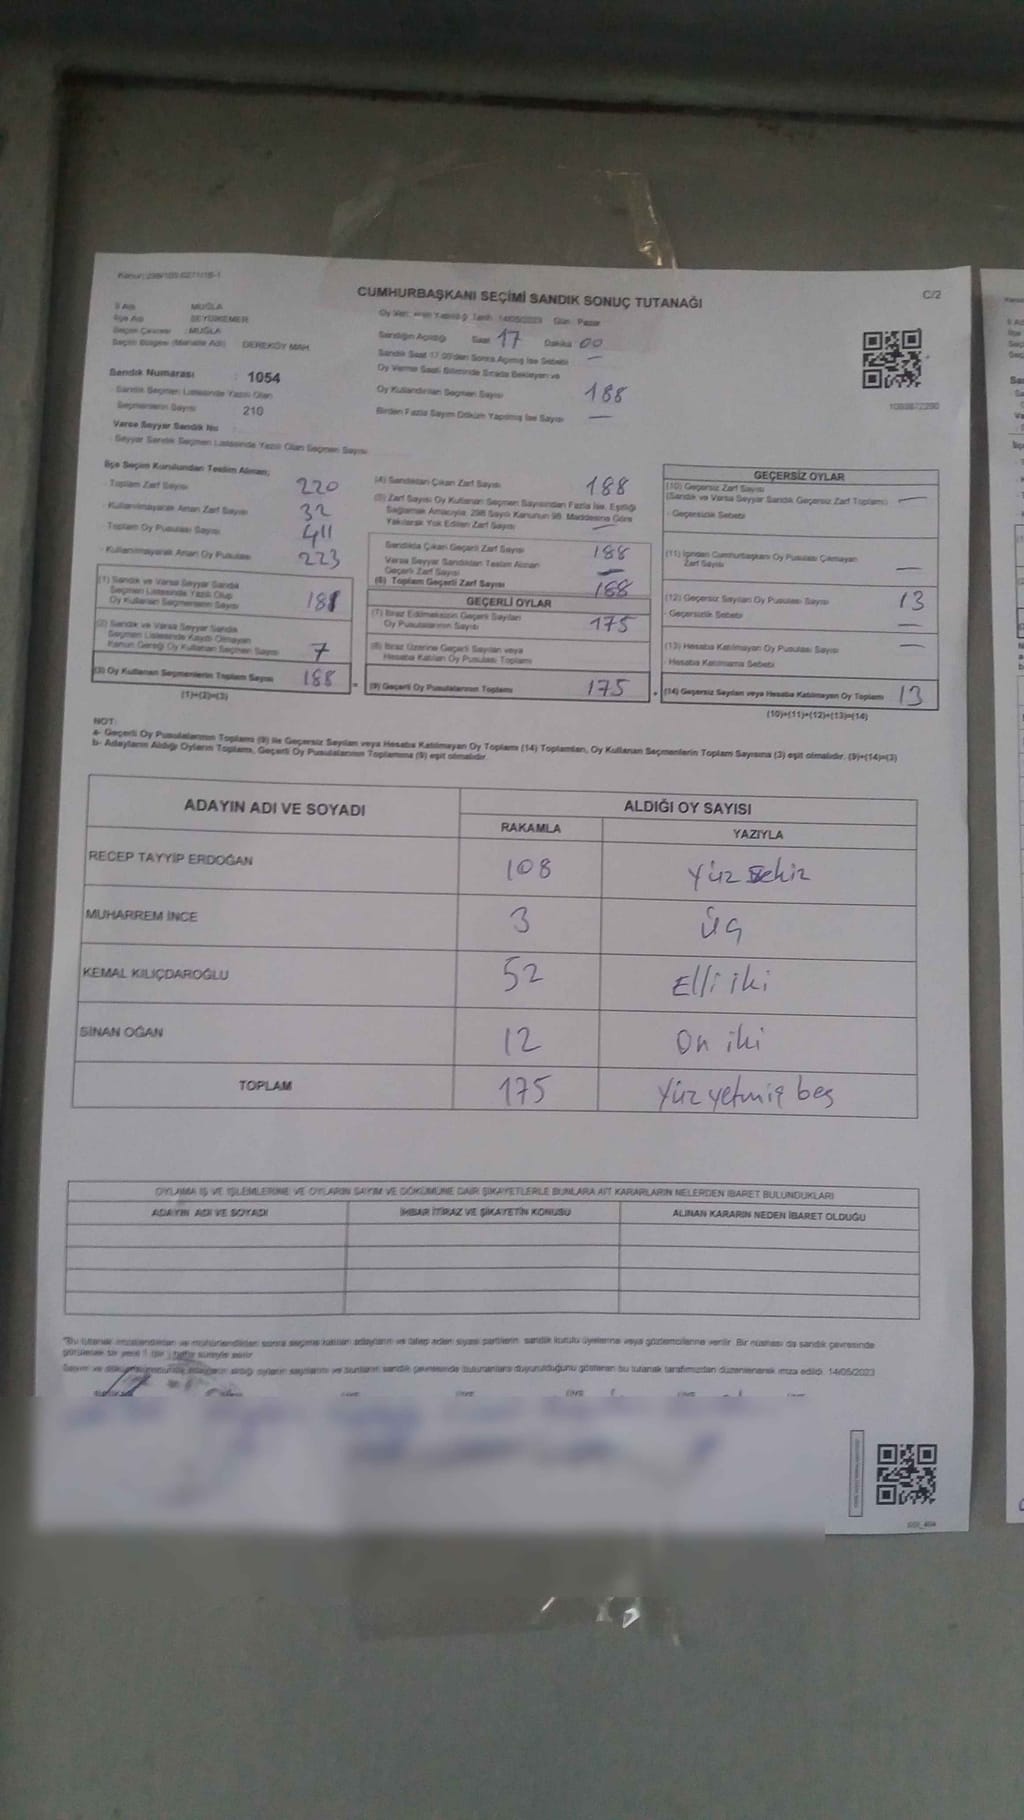 CUMHURBAŞKANI SEÇİMİ SANDIK SONUÇ TUTANAĞI
C/2
İl Adı MUĞLA
İlçe Adı SEYDİKEMER
Seçim Çevresi : MUĞLA
Seçim Bölgesi (Mahalle Adı) DEREKÖY MAH.
Sandık Numarası : 1054
Sandık Seçmen Listesinde Yazılı Olan
Seçmenlerin Sayısı : 210
Varsa Seyyar Sandık No
Seyyar Sandık Seçmen Listesinde Yazılı Olan Seçmen Sayısı
Tarih: 14/05/2023 Gün: Pazar
Sandığın Açıldığı Saat 17 Dakika 00
Sandık Saat 17.00'den Sonra Açılmış İse Sebebi —
Oy Verme Saati Bitiminde Sırada Bekleyen ve
Oy Kullandırılan Seçmen Sayısı 188
Birden Fazla Sayım Döküm Yapılmış İse Sayısı —
İlçe Seçim Kurulundan Teslim Alınan;
- Toplam Zarf Sayısı 220
- Kullanılmayarak Artan Zarf Sayısı 32
- Toplam Oy Pusulası Sayısı 411
- Kullanılmayarak Artan Oy Pusulası 223
(1) Sandık ve Varsa Seyyar Sandık
Seçmen Listesinde Yazılı Olup
Oy Kullanan Seçmenlerin Sayısı 181
(2) Sandık ve Varsa Seyyar Sandık
Seçmen Listesinde Kayıtlı Olmayan
Kanun Gereği Oy Kullanan Seçmen Sayısı 7
(3) Oy Kullanan Seçmenlerin Toplam Sayısı 188
(1)+(2)=(3)
(4) Sandıktan Çıkan Zarf Sayısı 188
(5) Zarf Sayısı Oy Kullanan Seçmen Sayısından Fazla İse, Eşitliği
Sağlamak Amacıyla, 298 Sayılı Kanunun 98. Maddesine Göre
Yakılarak Yok Edilen Zarf Sayısı —
Sandıkta Çıkan Geçerli Zarf Sayısı 188
Varsa Seyyar Sandıktan Teslim Alınan
Geçerli Zarf Sayısı —
(6) Toplam Geçerli Zarf Sayısı 188
GEÇERLİ OYLAR
(7) İtiraz Edilmeksizin Geçerli Sayılan
Oy Pusulalarının Sayısı 175
(8) İtiraz Üzerine Geçerli Sayılan veya
Hesaba Katılan Oy Pusulası Toplamı
(9) Geçerli Oy Pusulalarının Toplamı 175
GEÇERSİZ OYLAR
(10) Geçersiz Zarf Sayısı
(Sandık ve Varsa Seyyar Sandık Geçersiz Zarf Toplamı) —
- Geçersizlik Sebebi
(11) İçinden Cumhurbaşkanı Oy Pusulası Çıkmayan
Zarf Sayısı —
(12) Geçersiz Sayılan Oy Pusulası Sayısı 13
- Geçersizlik Sebebi —
(13) Hesaba Katılmayan Oy Pusulası Sayısı —
- Hesaba Katılmama Sebebi
(14) Geçersiz Sayılan veya Hesaba Katılmayan Oy Toplamı 13
(10)+(11)+(12)+(13)=(14)
NOT:
a- Geçerli Oy Pusulalarının Toplamı (9) ile Geçersiz Sayılan veya Hesaba Katılmayan Oy Toplamı (14) Toplamları, Oy Kullanan Seçmenlerin Toplam Sayısına (3) eşit olmalıdır. (9)+(14)=(3)
b- Adayların Aldığı Oyların Toplamı, Geçerli Oy Pusulalarının Toplamına (9) eşit olmalıdır.
ADAYIN ADI VE SOYADI ALDIĞI OY SAYISI
RAKAMLA YAZIYLA
RECEP TAYYİP ERDOĞAN 108 Yüz sekiz
MUHARREM İNCE 3 Üç
KEMAL KILIÇDAROĞLU 52 Elli iki
SİNAN OĞAN 12 On iki
TOPLAM 175 Yüz yetmiş beş
OYLAMA İŞ VE İŞLEMLERİNE VE OYLARIN SAYIM VE DÖKÜMÜNE DAİR ŞİKAYETLERLE BUNLARA AİT KARARLARIN NELERDEN İBARET BULUNDUKLARI
ADAYIN ADI VE SOYADI İHBAR İTİRAZ VE ŞİKAYETİN KONUSU ALINAN KARARIN NEDEN İBARET OLDUĞU
*Bu tutanak imzalandıktan ve mühürlendikten sonra seçime katılan adayların ve talep eden siyasi partilerin sandık kurulu üyelerine veya gözlemcilerine verilir. Bir nüshası da sandık çevresinde
görülecek bir yere 1 (bir) hafta süreyle asılır
adayların aldığı oyların sayılarını ve bunların sandık çevresinde bulunanlara duyurulduğunu gösteren bu tutanak tarafımızdan düzenlenerek imza edildi. 14/05/2023